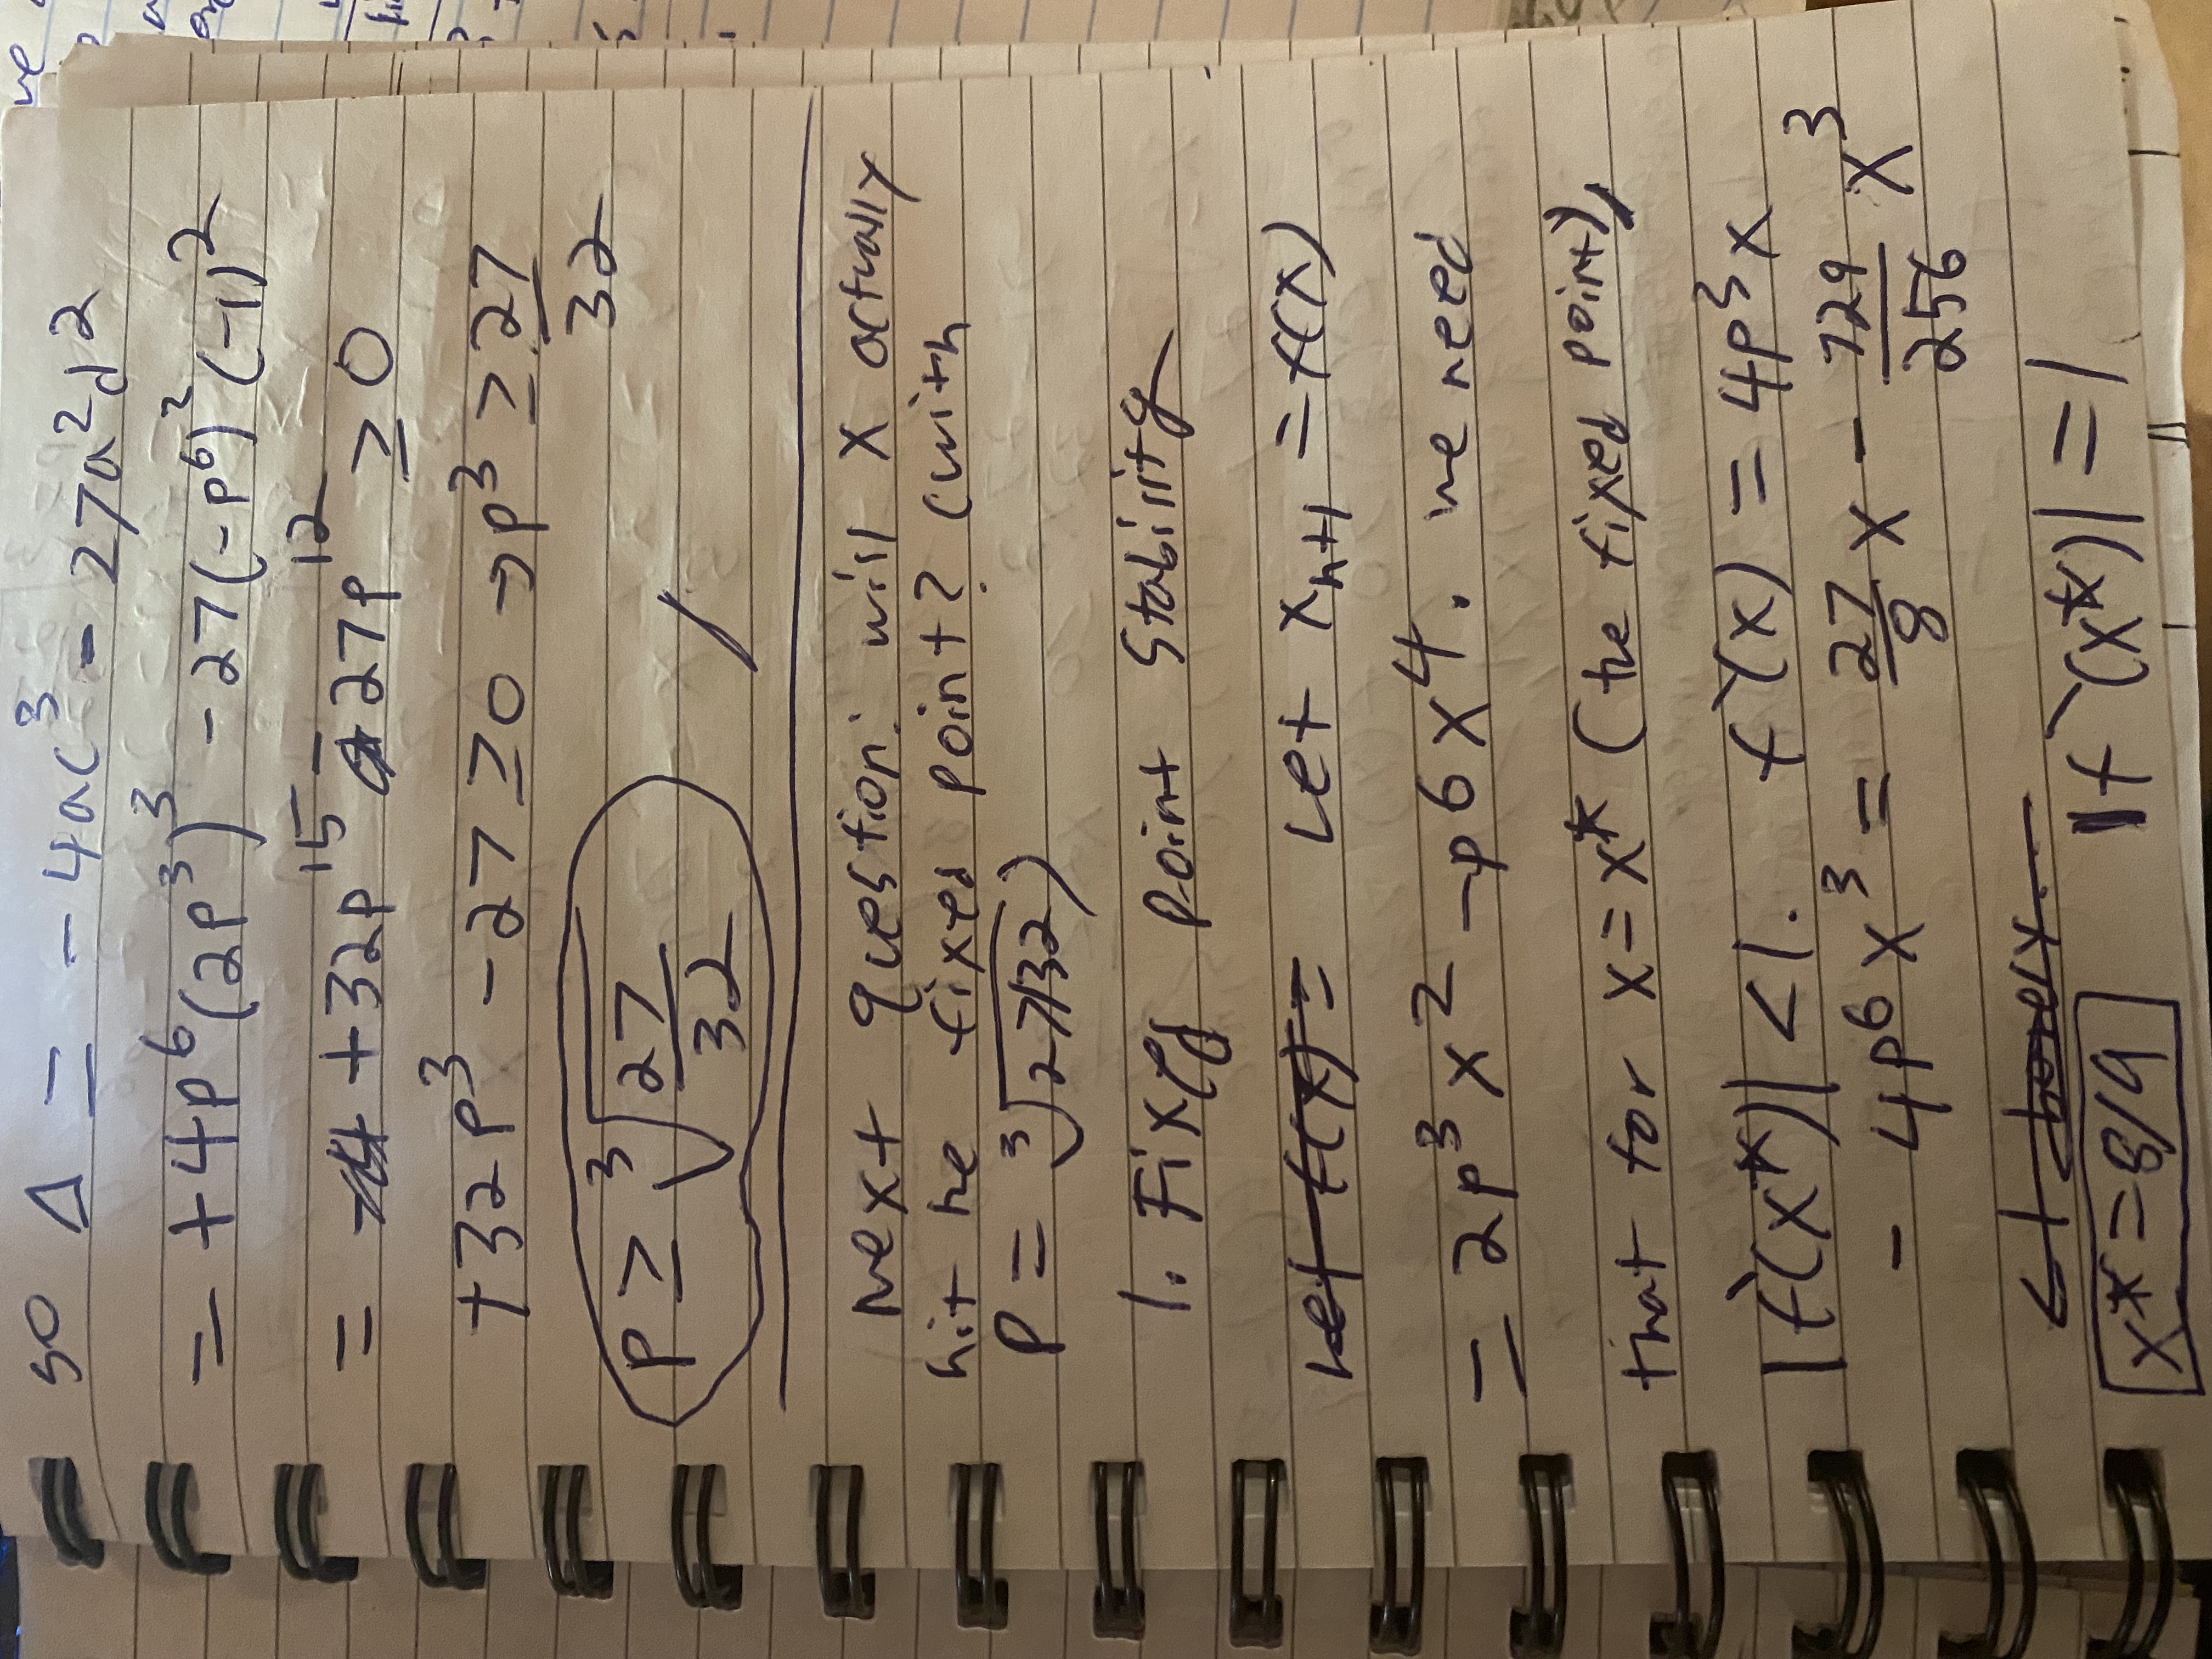 so Δ = - 4ac³ - 27a²d²
= +4p⁶(2p³)³ - 27(-p⁶)²(-1)²
= +32p¹⁵ - 27p¹² ≥ 0
+32p³ - 27 ≥ 0 → p³ ≥ 27/32
p ≥ ∛(27/32)
Next question: will X actually
hit the fixed point? (with
P = ∛27/32)
1. Fixed point stability
Let f(x) = Let xₙ₊₁ = f(x)
= 2p³x² - p⁶x⁴. we need
that for x = x* (the fixed point),
|f`(x*)| < 1. f`(x) = 4p³x
- 4p⁶x³ = 27/8 x - 729/256 x³
< 1 barely...
x* = 8/9 |f`(x*)| = 1